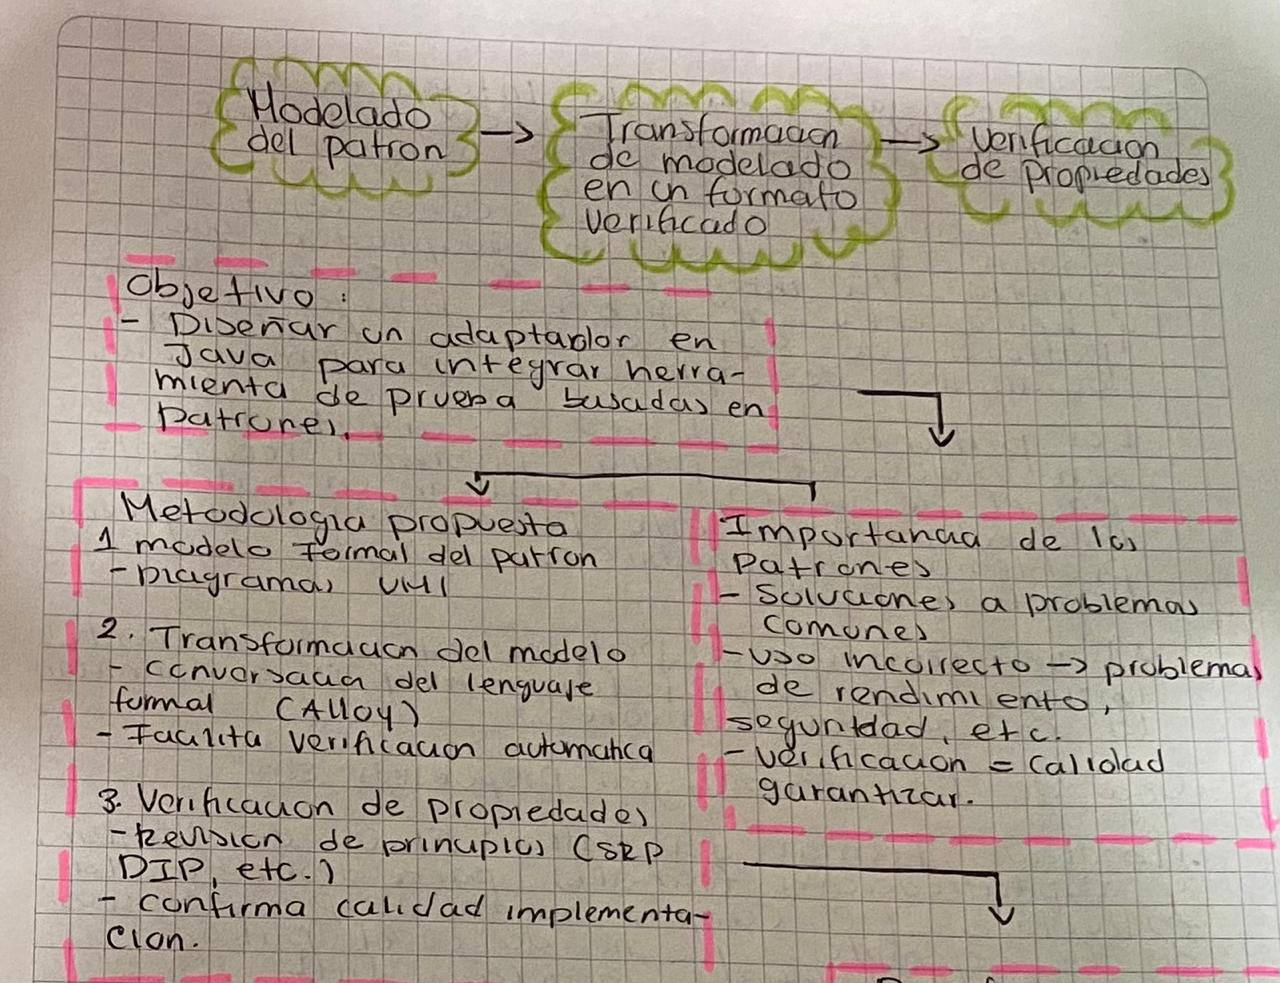 Modelado
del patron
→
Transformacion
de modelado
en un formato
verificado
→
Verificacion
de propiedades
Objetivo :
- Diseñar un adaptador en
Java para integrar herra-
mienta de prueba basadas en
patrones.
Metodologia propuesta
1 modelo formal del patron
- Diagramas UMl
2. Transformacion del modelo
- conversacion del lenguaje
formal (Alloy)
- Facilita verificacion automatica
3. Verificacion de propiedades
- Revision de principios (SRP
DIP, etc.)
- confirma calidad implementa-
cion.
Importancia de los
Patrones
- Soluciones a problemas
comunes
- uso incorrecto → problemas
de rendimiento,
seguridad, etc.
- verificacion = calidad
garantizar.